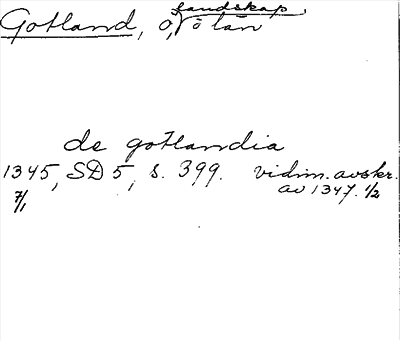 Gotland, ö, landskap, o län
de gotlandia
1345, SD 5, s. 399. vidim. avskr.
7/1 av 1347. 1/2